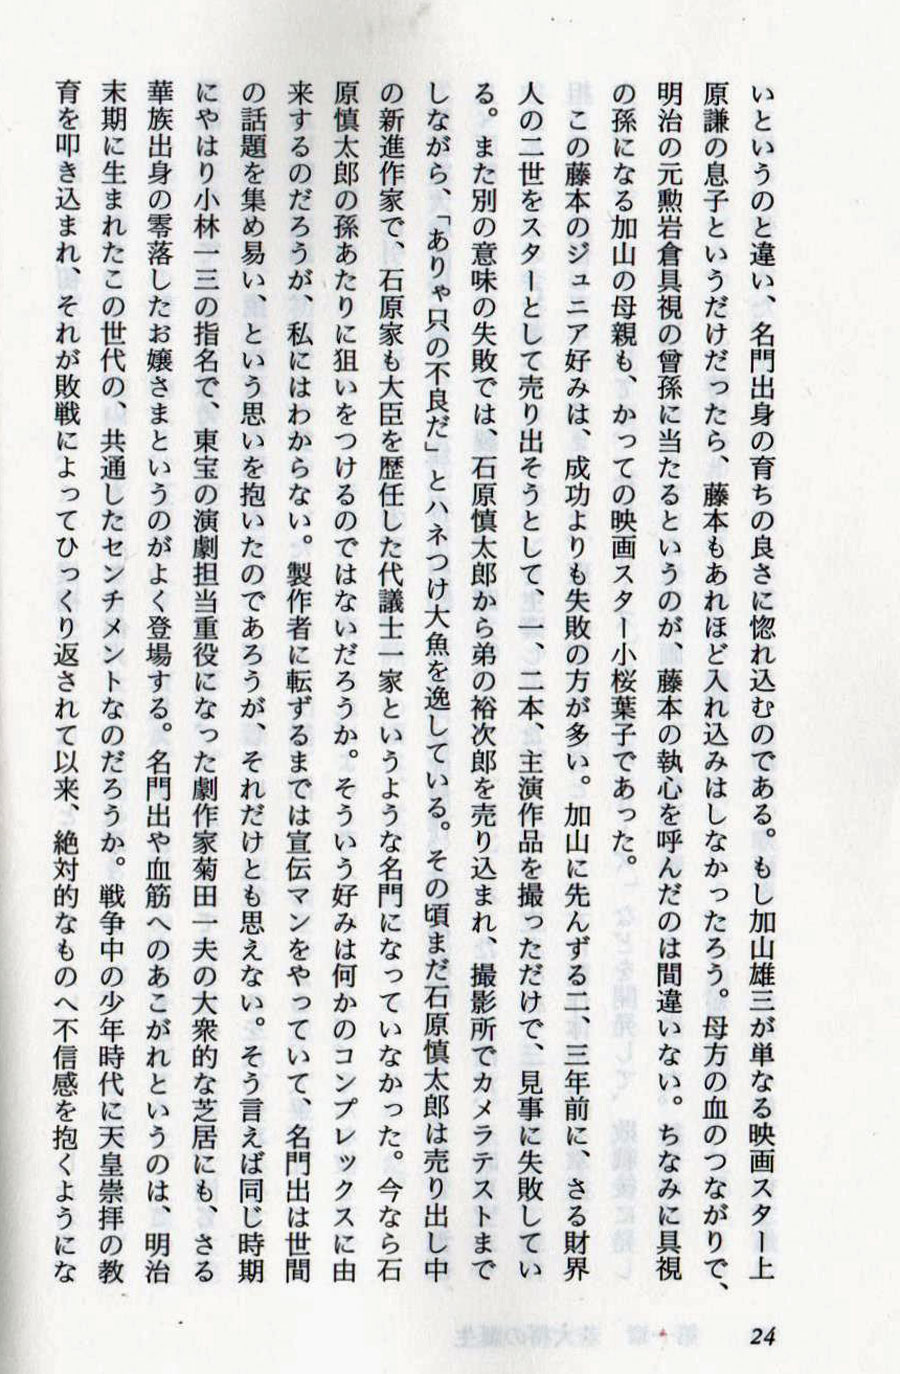 いというのと違い、名門出身の育ちの良さに惚れ込むのである。もし加山雄三が単なる映画スター上
原謙の息子というだけだったら、藤本もあれほど入れ込みはしなかったろう。母方の血のつながりで、
明治の元勲岩倉具視の曾孫に当たるというのが、藤本の執心を呼んだのは間違いない。ちなみに具視
の孫になる加山の母親も、かっての映画スター小桜葉子であった。
この藤本のジュニア好みは、成功よりも失敗の方が多い。加山に先んずる二、三年前に、さる財界
人の二世をスターとして売り出そうとして、一、二本、主演作品を撮っただけで、見事に失敗してい
る。また別の意味の失敗では、石原慎太郎から弟の裕次郎を売り込まれ、撮影所でカメラテストまで
しながら、「ありゃ只の不良だ」とハネつけ大魚を逸している。その頃まだ石原慎太郎は売り出し中
の新進作家で、石原家も大臣を歴任した代議士一家というような名門になっていなかった。今なら石
原慎太郎の孫あたりに狙いをつけるのではないだろうか。そういう好みは何かのコンプレックスに由
来するのだろうが、私にはわからない。製作者に転ずるまでは宣伝マンをやっていて、名門出は世間
の話題を集め易い、という思いを抱いたのであろうが、それだけとも思えない。そう言えば同じ時期
にやはり小林一三の指名で、東宝の演劇担当重役になった劇作家菊田一夫の大衆的な芝居にも、さる
華族出身の零落したお嬢さまというのがよく登場する。名門出や血筋へのあこがれというのは、明治
末期に生まれたこの世代の、共通したセンチメントなのだろうか。戦争中の少年時代に天皇崇拝の教
育を叩き込まれ、それが敗戦によってひっくり返されて以来、絶対的なものへ不信感を抱くようにな
24